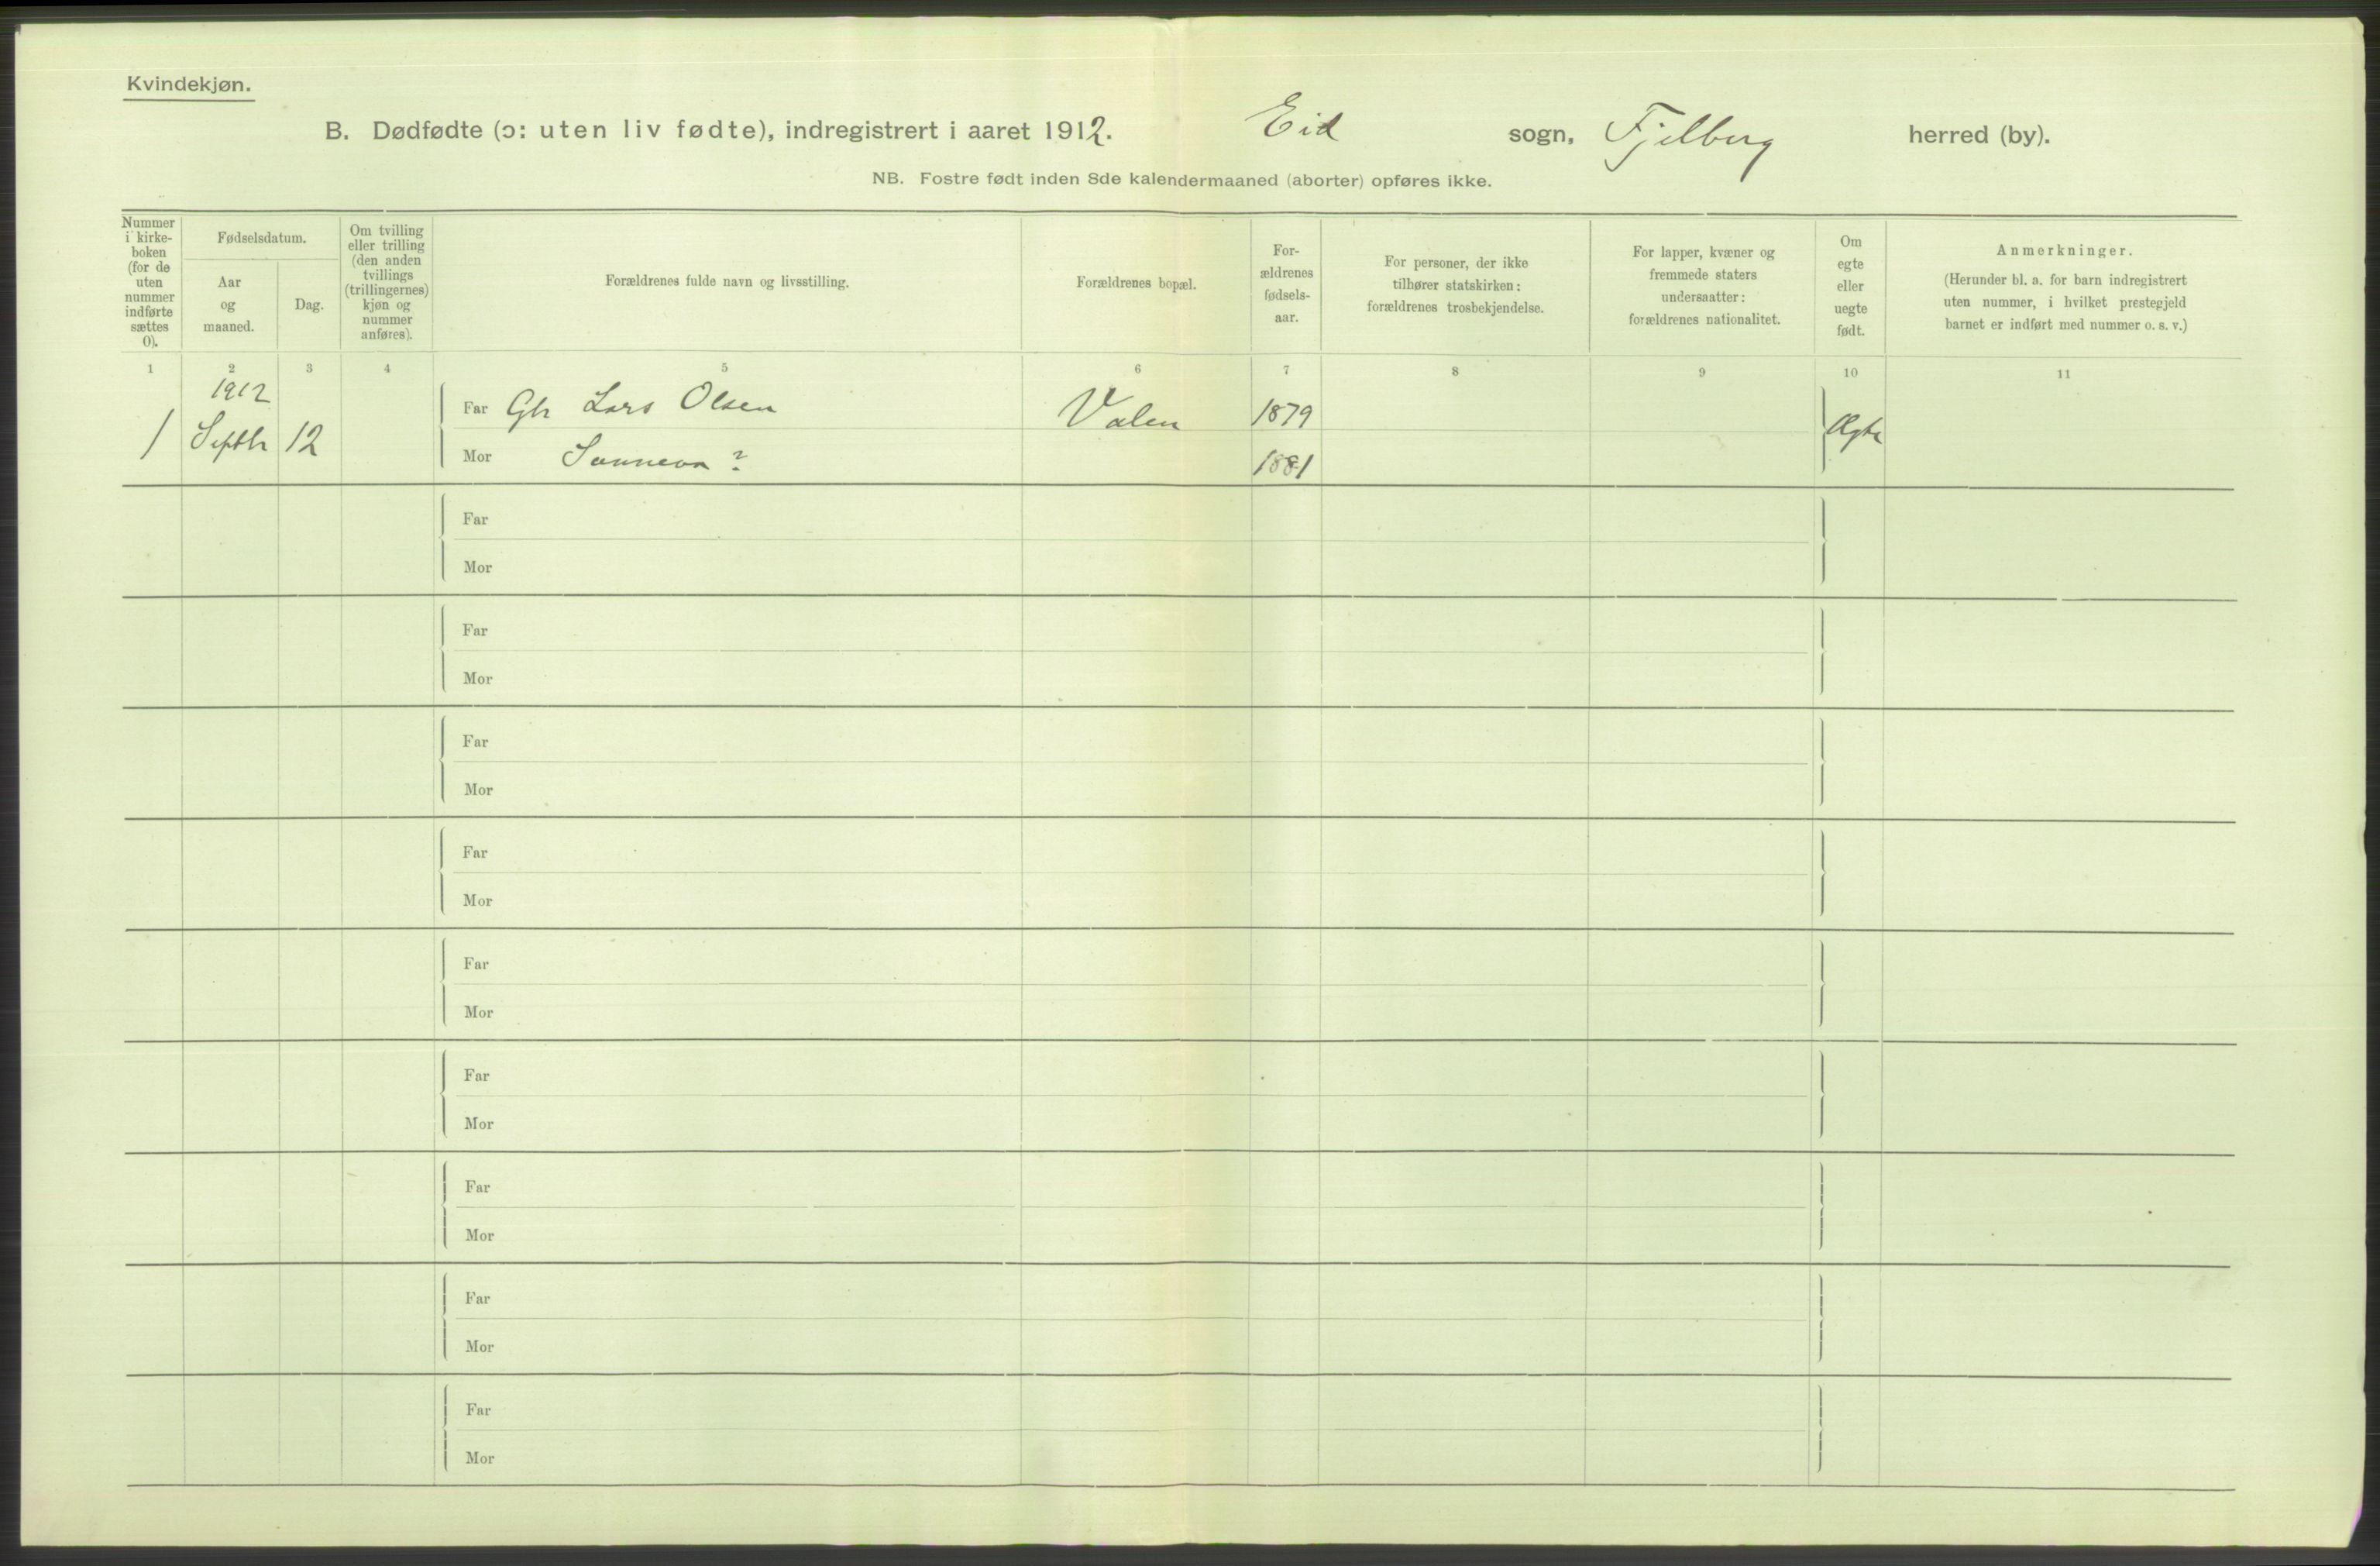 Kvindekjøn.
B. Dødfødte (ɔ: uten liv fødte), indregistrert i aaret 1912. Eid sogn, Fjelberg herred (by).
NB. Fostre født inden 8de kalendermaaned (aborter) opføres ikke.
Nummer
i kirke-
boken
(for de
uten
nummer
indførte
sættes
0).
Fødselsdatum.
Aar
og
maaned.
Dag.
Om tvilling
eller trilling
(den anden
tvillings
(trillingernes)
kjøn og
nummer
anføres).
Forældrenes fulde navn og livsstilling.
Forældrenes bopæl.
For-
ældrenes
fødsels-
aar.
For personer, der ikke
tilhører statskirken:
forældrenes trosbekjendelse.
For lapper, kvæner og
fremmede staters
undersaatter:
forældrenes nationalitet.
Om
egte
eller
uegte
født.
Anmerkninger.
(Herunder bl. a. for barn indregistrert
uten nummer, i hvilket prestegjeld
barnet er indført med nummer o. s. v.)
1 2 3 4 5 6 7 8 9 10 11
1912
1 Septbr 12
Far Gbr Lars Olsen Valen 1879
Ægte
Mor Sunneva ? 1881
Far
Mor
Far
Mor
Far
Mor
Far
Mor
Far
Mor
Far
Mor
Far
Mor
Far
Mor
Far
Mor